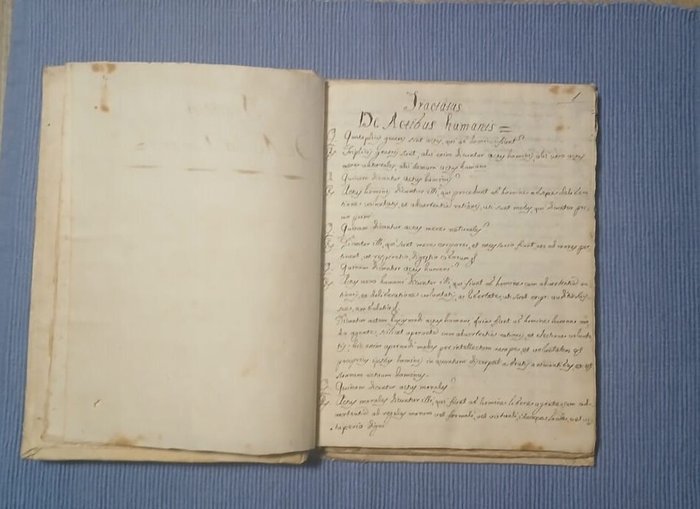 1
Tractatus
De Actibus humanis =
Quotuplicis generis sunt actus, qui ab homine fiunt?
Triplicis generis sunt, alii enim dicuntur actus hominis, alii vero actus
mere naturales, alii demum actus humani
Quinam dicuntur actus hominis?
Actus hominis dicuntur illi, qui procedunt ab homine absque delibera
tione voluntatis, et advertentia rationis, uti sunt motus, qui dicuntur pri
mo primi
Quinam dicuntur actus mere naturales?
Dicuntur illi, qui sunt mere corporei, et necessario fiunt, nec ad mores per
tinent, ut respiratio, digestio ciborum
Quinam dicuntur actus humani?
Actus vero humani dicuntur illi, qui fiunt ab homine cum advertentia ra
tionis, ac deliberatione voluntatis, ac libertate, ut sunt
Dicuntur autem hujusmodi actus humani, quia fiunt ab homine humano mo
do agente, scilicet operante cum advertentia rationis, et electione volunta
tis; hic enim operandi modus per intellectum nempe, et voluntatem est
proprius ipsius hominis in quantum
hominis.
Quinam dicuntur actus morales?
Actus morales dicuntur illi, qui fiunt ab homine libere agente, cum ad
vertentia ad regulas morum vel formali, vel virtuali,
vituperio digni